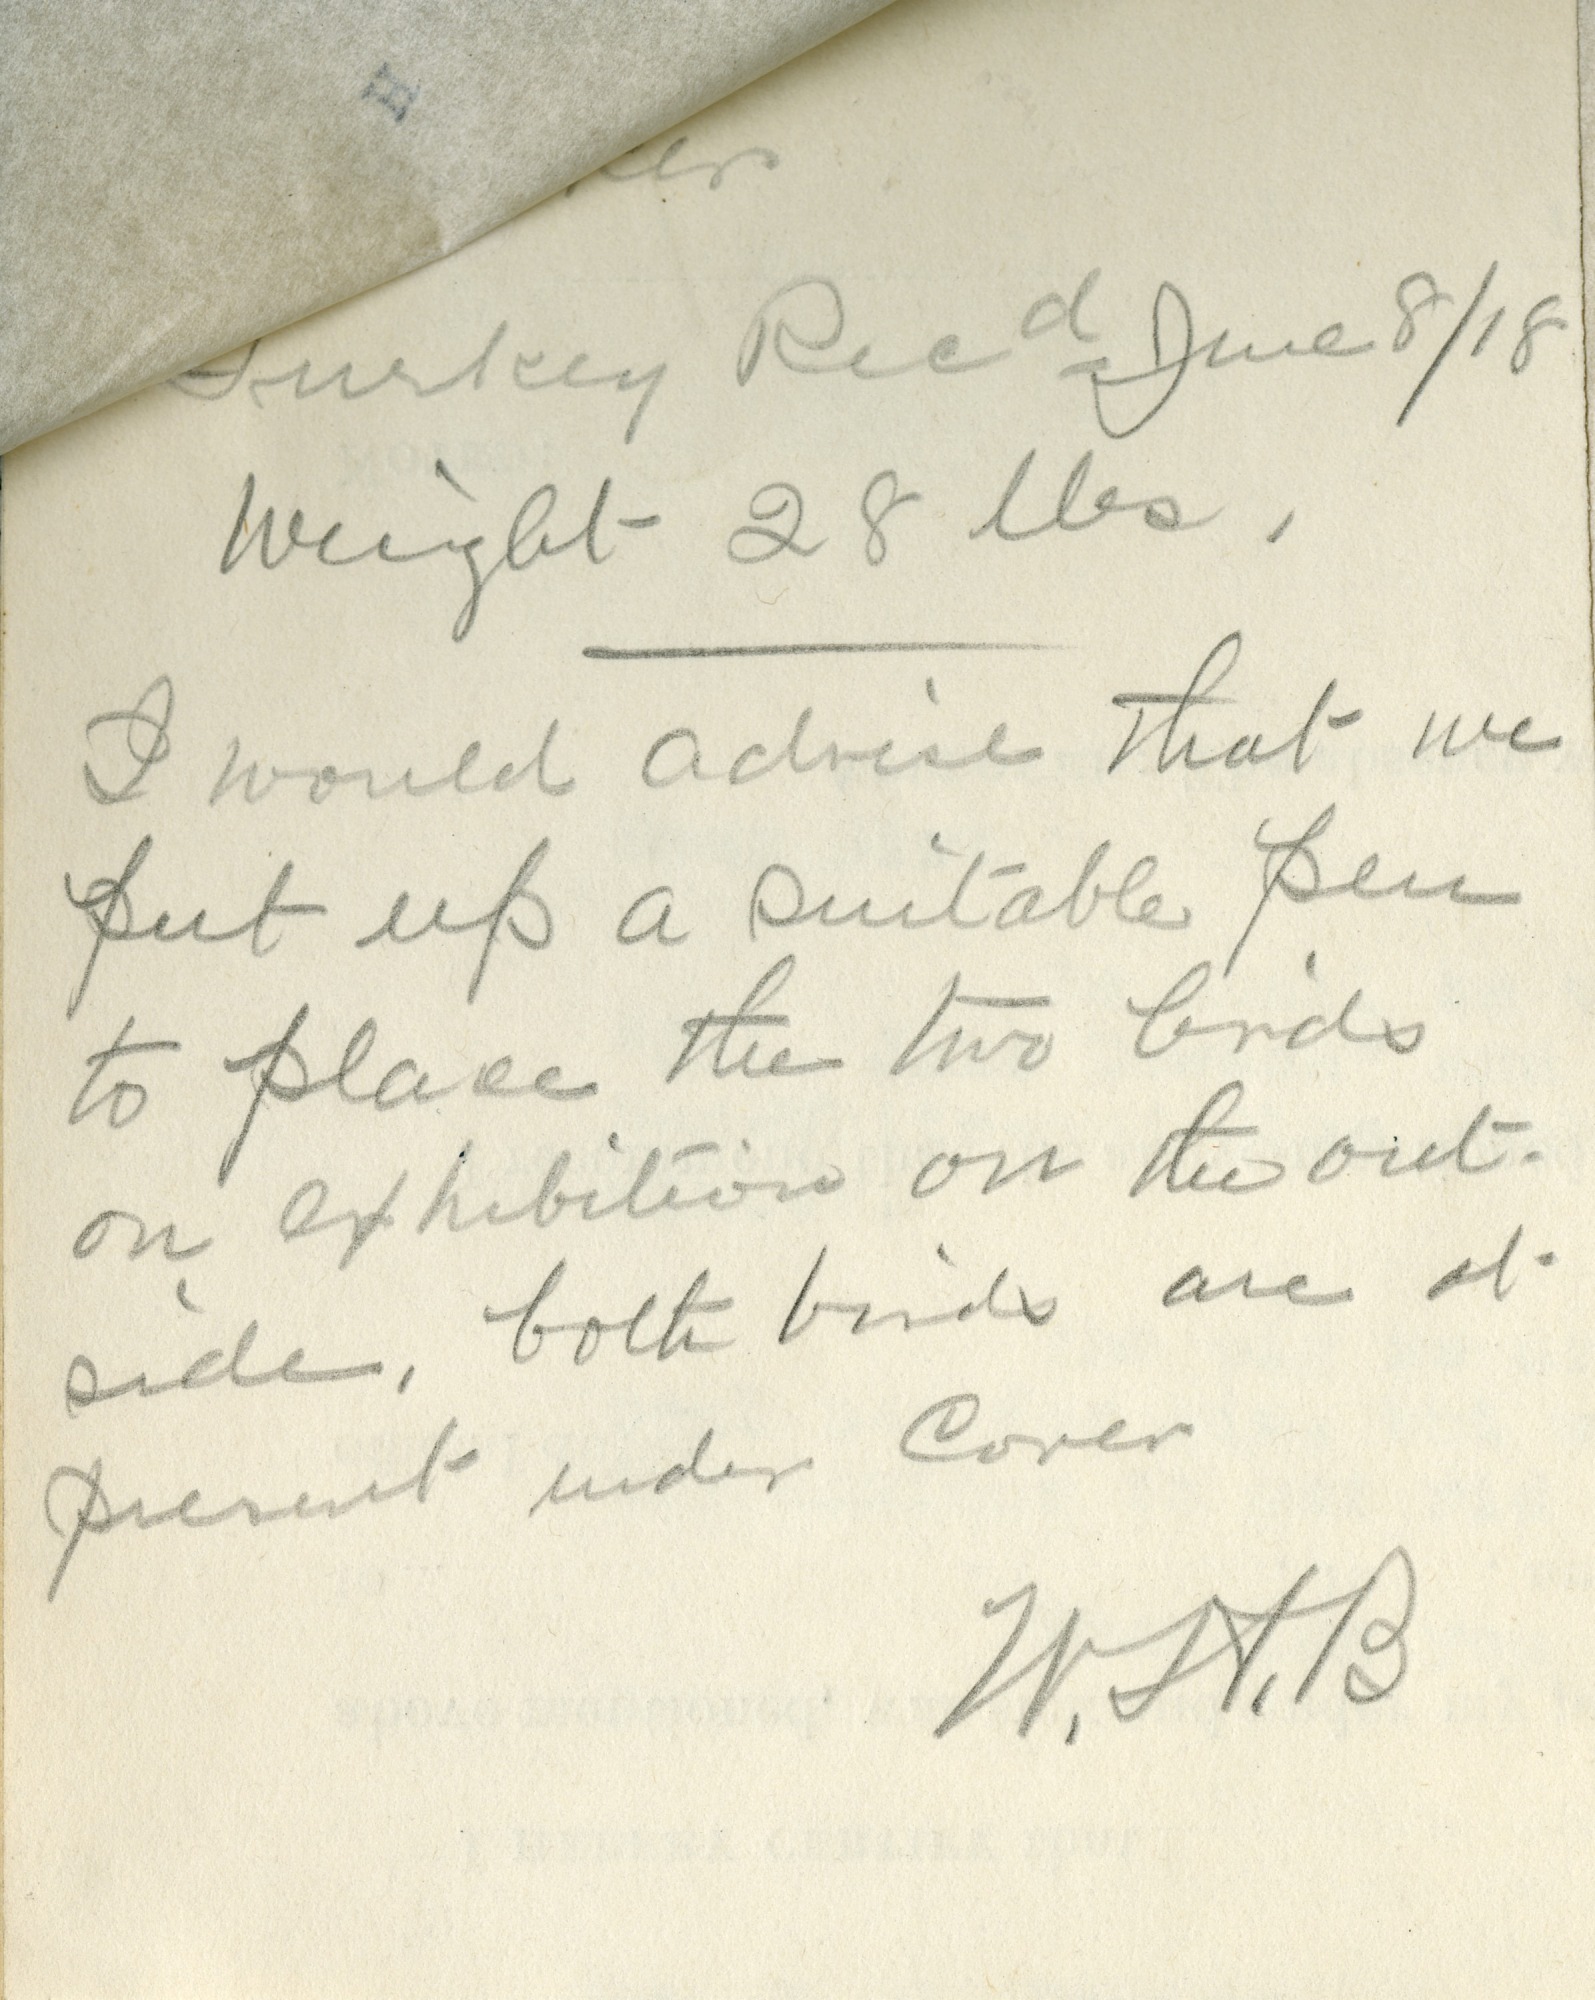 H
Turkey Recd June 8/18
Weight 28 lbs,
I would advise that we
put up a suitable pen
to place the two birds
on exhibition on the out-
side, both birds are at
present under Cover
W.H.B